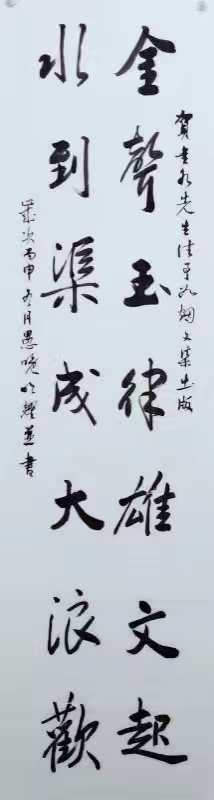 賀 先生 文集出版
金聲玉律雄文起
水到渠成大浪歡
歲次丙申冬月愚 並書